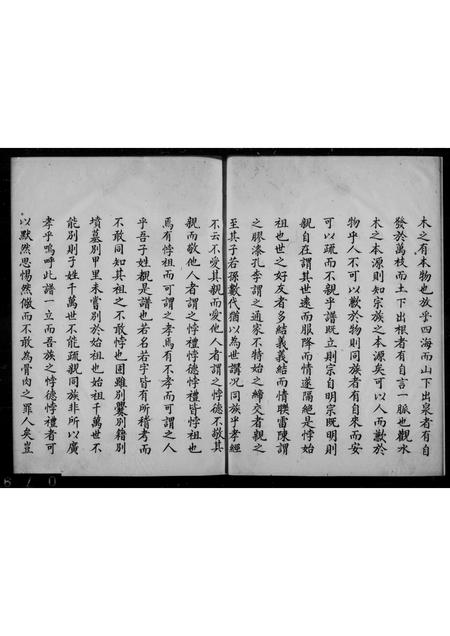 木之有本物也放乎四海而山下出泉者有自
發於萬枝而土下出根者有自言一脉也觀水
木之本源則知宗族之本源矣可以人而歉於
物乎人不可以歉於物則同族者有自來而安
可以疏而不親乎譜既立則宗自明宗既明則
親自在謂其世遠而服降而情遂隔絕是悖始
祖也世之好友者多結義義結而情聯雷陳謂
之膠漆孔李謂之通家不特始之締交者親之
至其子若孫數代猶以為世講况同族乎孝經
不云不愛其親而愛他人者謂之悖德不敬其
親而敬他人者謂之悖禮悖德悖禮皆悖祖也
焉有悖祖而可謂之孝焉有不孝而可謂之人
乎吾子姓覩是譜也若名若字皆有所稽考而
不敢同知其祖之不敢悖也困雖別爨別籍別
墳墓別甲里未嘗別於始祖也始祖千萬世不
能別則子姓千萬世不能疏親同族非所以廣
孝乎嗚呼此譜一立而吾族之悖德悖禮者可
以默然思惕然儆而不敢為骨肉之罪人矣豈